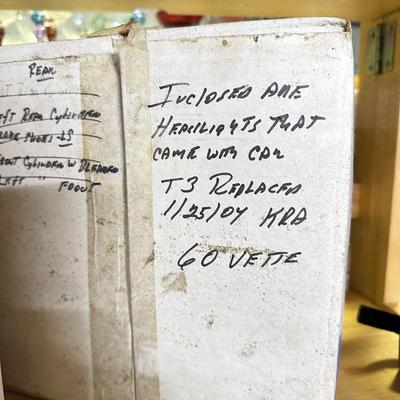 REAR
LEFT REAR CYLINDER
BRAKE SHOES - LS
FRONT CYLINDER W BLEEDER
LEFT " FRONT
INCLOSED ARE
HEADLIGHTS THAT
CAME WITH CAR
T3 REPLACED
1/25/04 KRA
60 VETTE